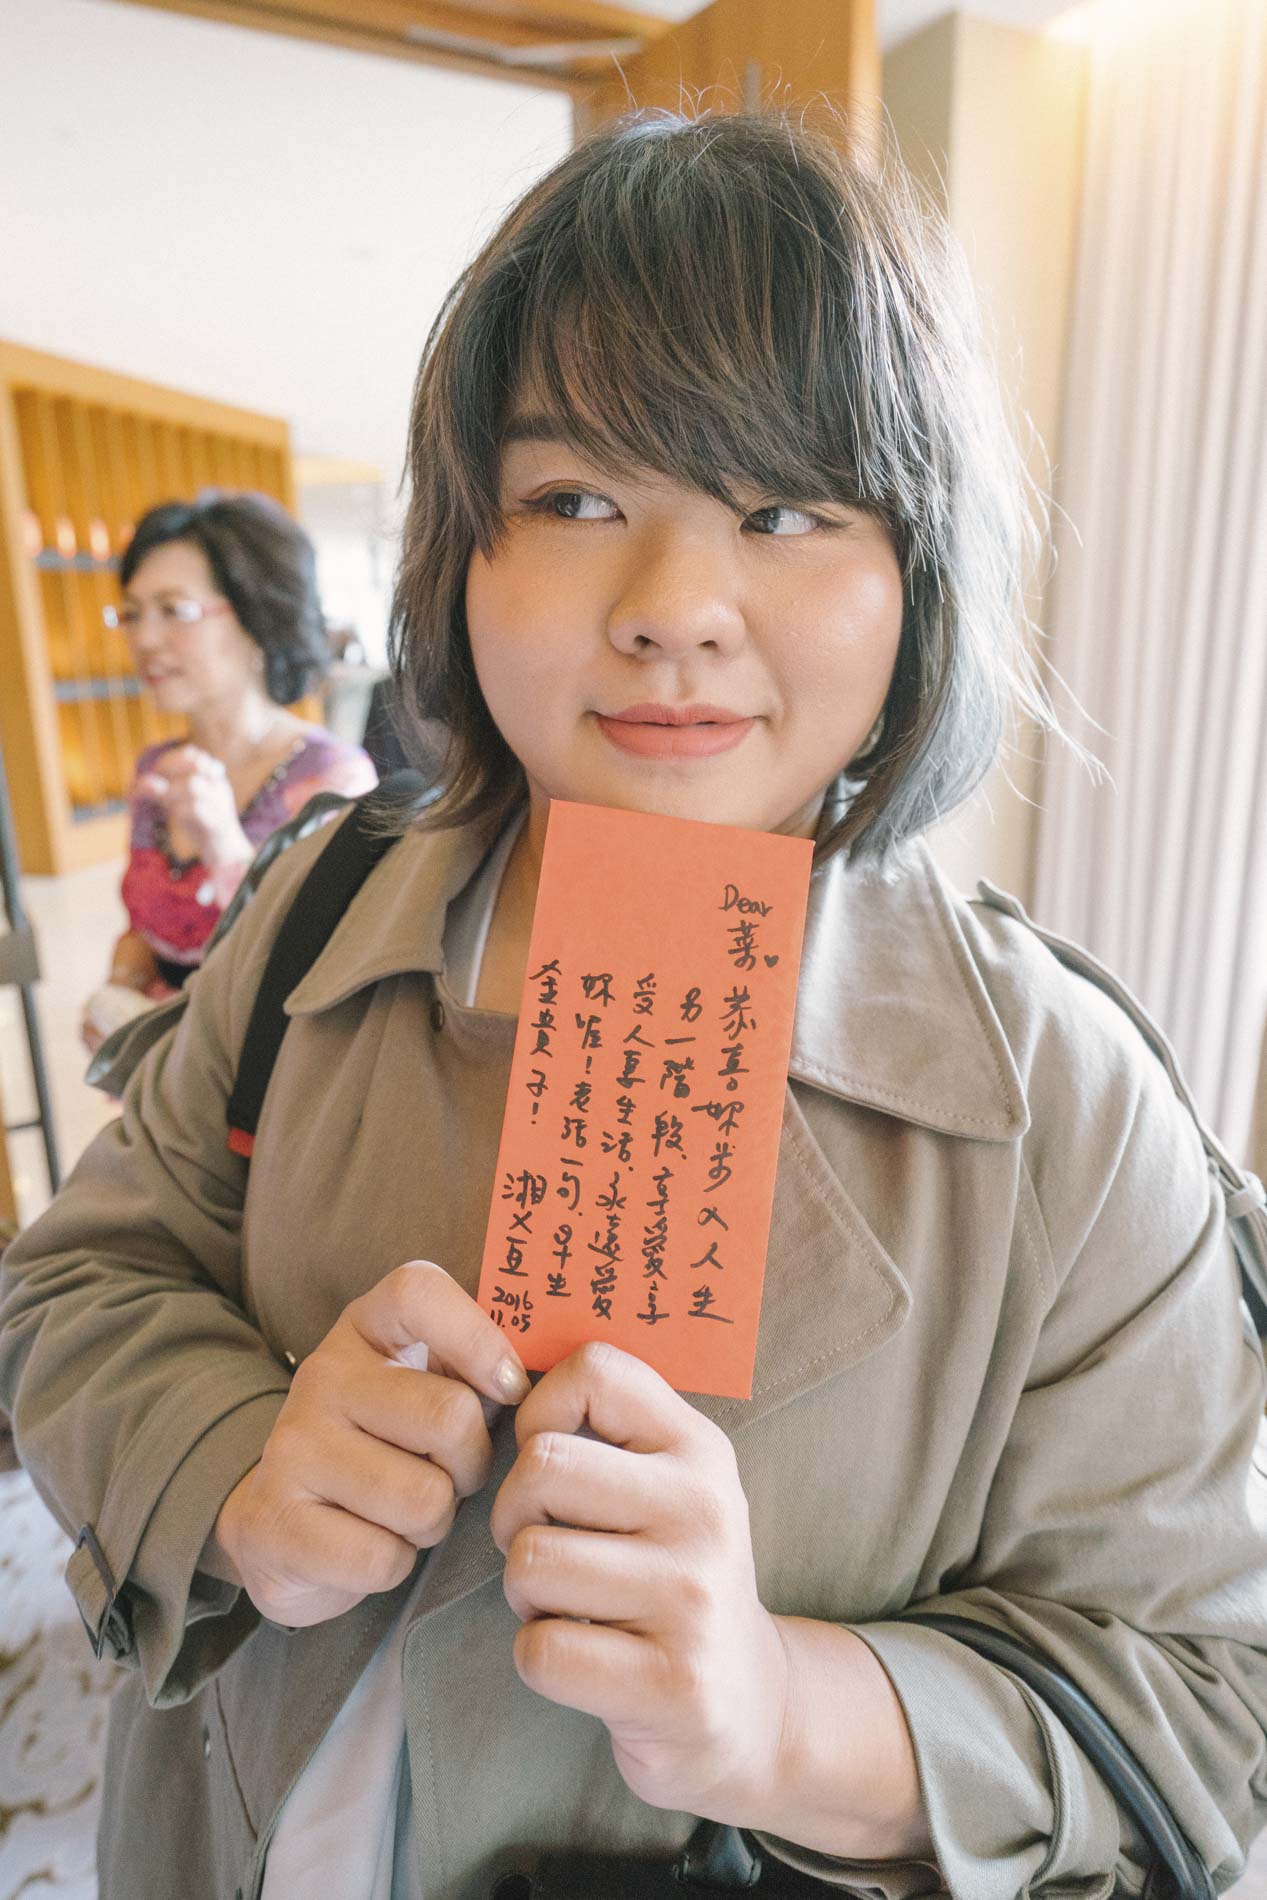 Dear
菜♥
恭喜妳步入人生
另一階段、享受愛享
受人妻生活、永遠愛
妳喔！老話一句、早生
金貴子！
湘×亘
2016
11.05